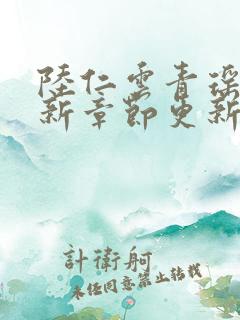 陸仁雲青瑤
新章節更新
計衛舸
未经同意禁止转载